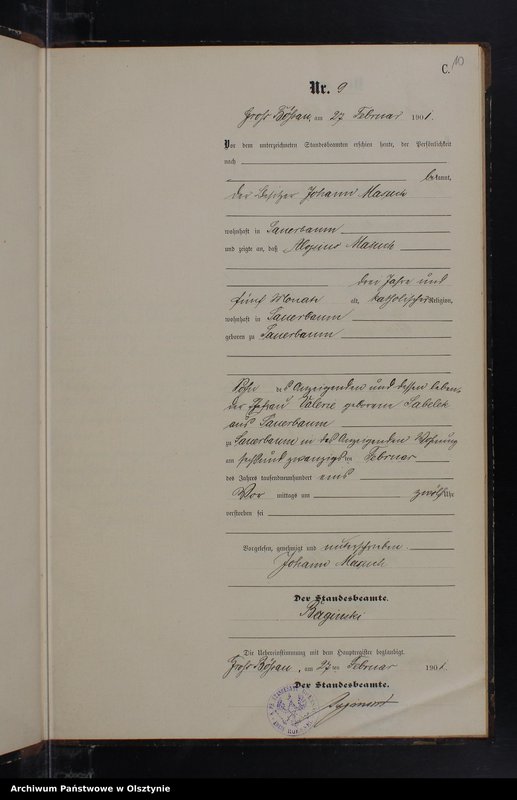 C. 10
Nr. 9
Groß Bößau, am 27 Februar 1901.
Vor dem unterzeichneten Standesbeamten erschien heute, der Persönlichkeit
nach
bekannt,
der Besitzer Johann Masuch
wohnhaft in Sauerbaum
und zeigte an, daß Aloysius Masuch
drei Jahre und
fünf Monate alt, katholischer Religion,
wohnhaft in Sauerbaum
geboren zu Sauerbaum
Sohn des Anzeigenden und dessen leben-
der Ehefrau Valerie geborene Sabellek
aus Sauerbaum
zu Sauerbaum in des Anzeigenden Wohnung
am sechsundzwanzigsten Februar
des Jahres tausendneunhundert eins
Vor mittags um zwölf Uhr
verstorben sei
Vorgelesen, genehmigt und unterschrieben
Johann Masuch
Der Standesbeamte.
Baginski
Die Uebereinstimmung mit dem Hauptregister beglaubigt.
Groß Bößau, am 27 ten Februar 1901.
Der Standesbeamte.
Archiwum Państwowe w Olsztynie